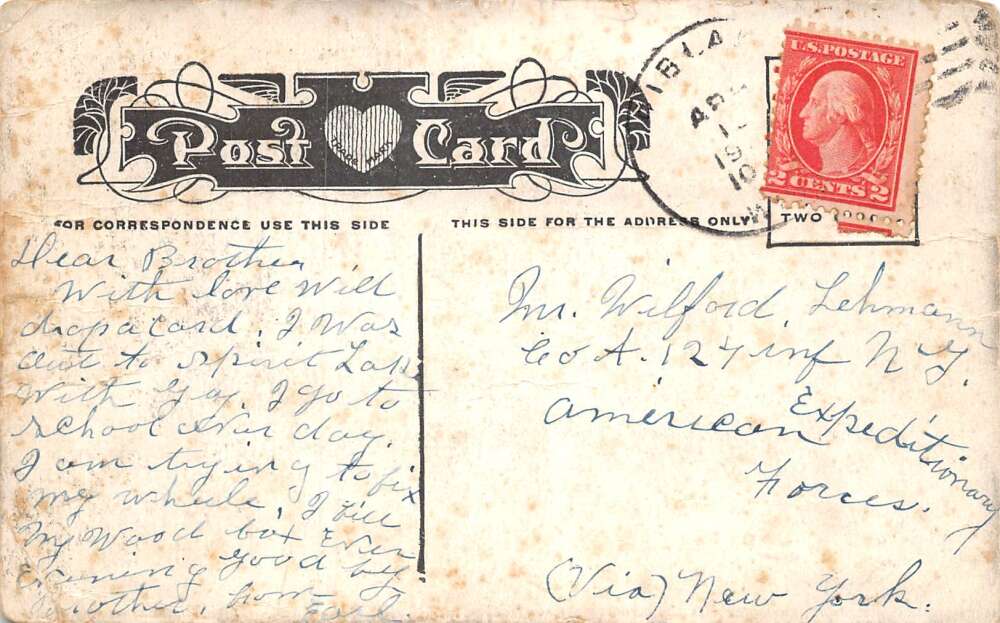 Post Card
TRADE MARK
U.S. POSTAGE
2 CENTS 2
APR
FOR CORRESPONDENCE USE THIS SIDE
THIS SIDE FOR THE ADDRESS ONLY
TWO
Dear Brother
With love Will
drop a card. I Was
out to Spirit Lake
With Guy. I go to
school ever day.
I am trying to fix
my wheele, I fill
My Wood box Ever
Evening good by
Brother, from
Earl.
Mr. Wilford, Lehmann
Co A. 124 inf N Y.
American Expeditionary
Forces.
(Via) New York.